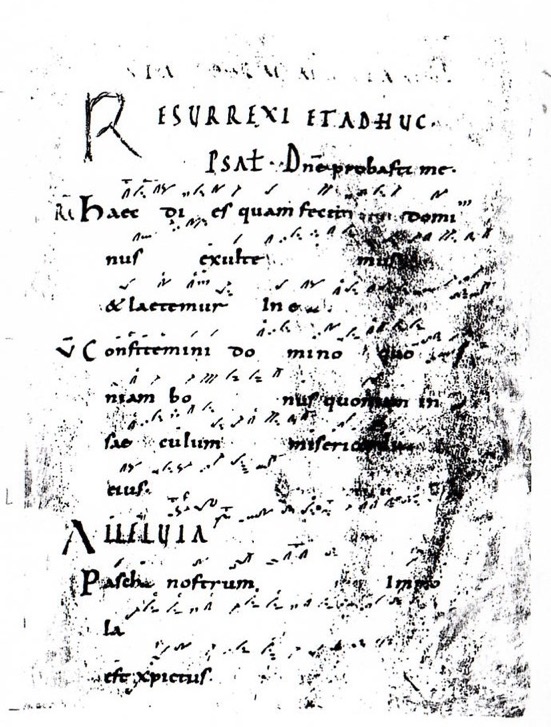 RESURREXI ET ADHUC.
PSAL̄. Dn̄e probasti me.
R̄ Haec di es quam fecit domi
nus exulte mus
& laetemur In e
V̄ Confitemini do mino quo
niam bo nus quoniam in
sae culum misericordia
eius.
ALLELUIA
Pascha nostrum Immo
la
est xpictus.